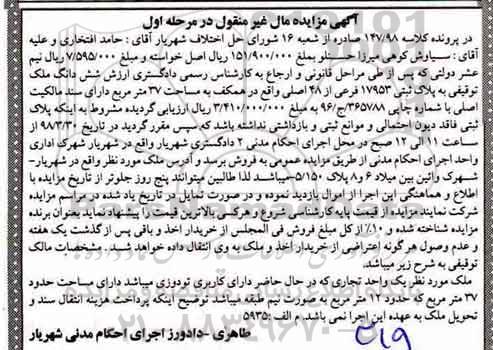 آگهی مزایده مال غیر منقول در مرحله اول
در پرونده کلاسه ۱۴۷/۹۸ صادره از شعبه ۱۶ شورای حل اختلاف شهریار آقای : حامد افتخاری و علیه
آقای : سیاوش کوهی میرزا حسنلو بمبلغ ۱۵۱/۹۰۰/۰۰۰ ریال اصل خواسته و مبلغ ۷/۵۹۵/۰۰۰ ریال نیم
عشر دولتی که پس از طی مراحل قانونی و ارجاع به کارشناس رسمی دادگستری ارزش شش دانگ ملک
توقیفی به پلاک ثبتی ۱۷۹۵۳ فرعی از ۴۸ اصلی واقع در همکف به مساحت ۳۷ متر مربع دارای سند مالکیت
اصلی با شماره چاپی ۳۶۵۷۸۸/ج/۹۶ به مبلغ ۳/۴۱۰/۰۰۰/۰۰۰ ریال ارزیابی گردیده مشروط به اینکه پلاک
ثبتی فاقد دیون احتمالی و موانع ثبتی و بازداشتی نداشته باشد که سپس مقرر گردید در تاریخ ۹۸۳/۳۰
ساعت ۱۱ الی ۱۲ صبح در محل اجرای احکام مدنی ۲ دادگستری شهریار واقع در شهریار شهرک اداری
واحد اجرای احکام مدنی از طریق مزایده عمومی به فروش برسد و آدرس ملک مورد نظر واقع در شهریار-
شهرک رائین بین میلاد ۶ و ۸ پلاک ۵/۱۵۰-میباشد لذا طالبین میتوانند پنج روز جلوتر از تاریخ مزایده با
اطلاع و هماهنگی این اجرا از اموال بازدید نموده و در صورت تمایل در تاریخ یاد شده در مراسم مزایده
شرکت نمایند مزایده از قیمت پایه کارشناسی شروع و هرکسی بالاترین قیمت را پیشنهاد نماید بعنوان برنده
مزایده شناخته شده و ۱۰٪ از کل مبلغ فروش فی المجلس از خریدار اخذ و باقی پس از گذشت یک هفته
و عدم وصول هر گونه اعتراضی از خریدار اخذ و ملک به وی انتقال داده خواهد شد . مشخصات مالک
توقیفی به شرح زیر میباشد.
ملک مورد نظر یک واحد تجاری که در حال حاضر دارای کاربری تودوزی میباشد دارای مساحت حدود
۳۷ متر مربع که حدود ۱۲ متر مربع به صورت نیم طبقه میباشد توضیح اینکه پرداخت هزینه انتقال سند و
تحویل ملک به عهده این اجرا نمی باشد. م الف :۵۹۳۵
طاهری -دادورز اجرای احکام مدنی شهریار